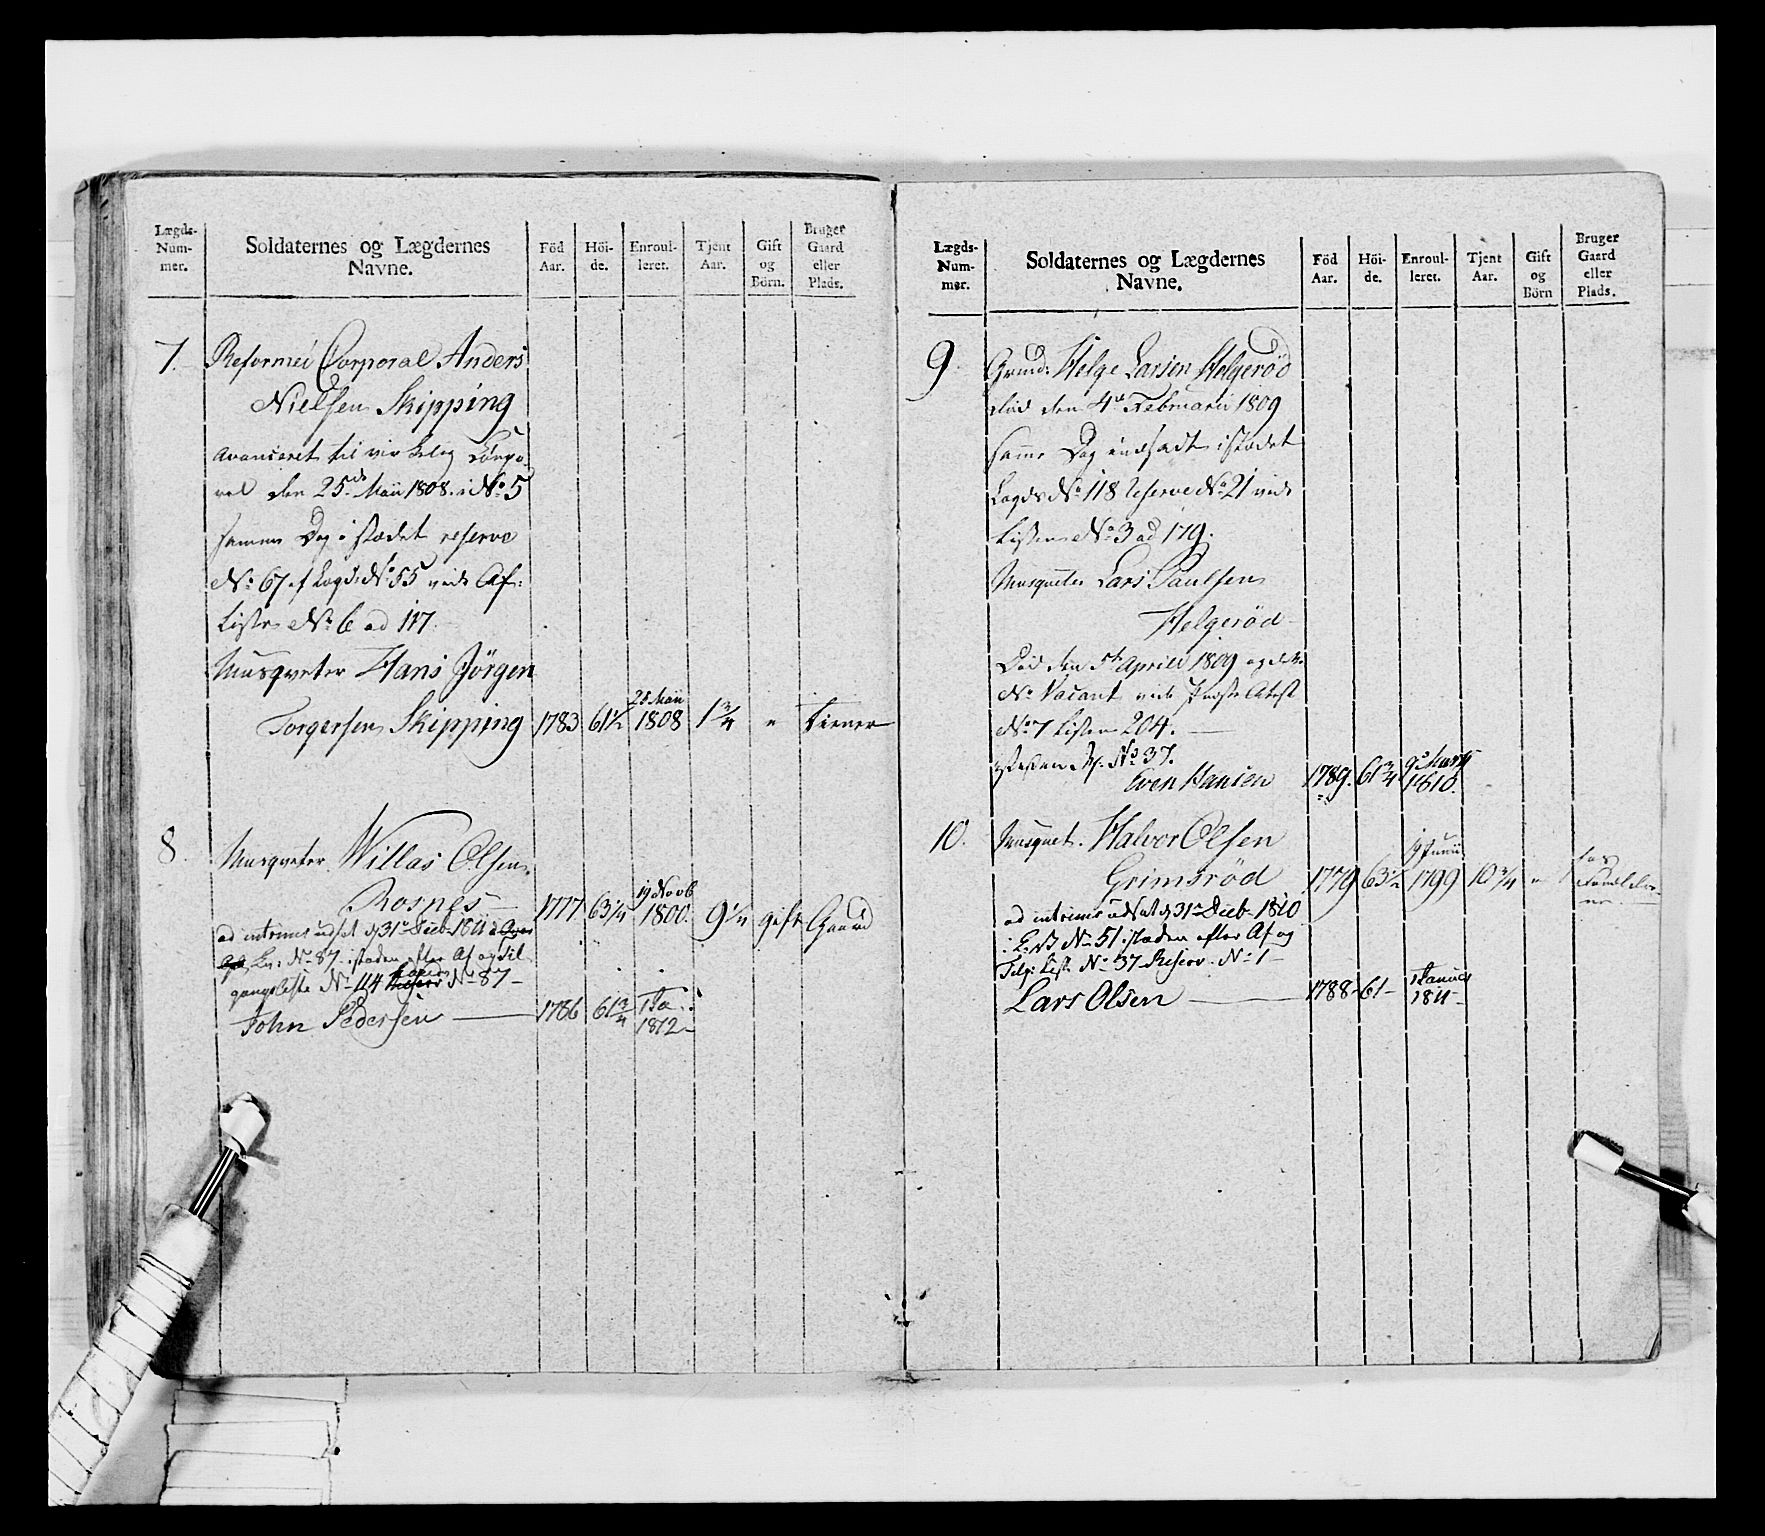 Lægds-
Num-
mer.
Soldaternes og Lægdernes
Navne.
Föd
Aar.
Höi-
de.
Enroul-
leret.
Tjent
Aar.
Gift
og
Börn.
Bruger
Gaard
eller
Plads.
7. Reformei Corporal Anders
Nielsen Skipping
avanceret til Corpo-
ral den 25de Maii 1808. i No 5
samme Dag i stædet reserve
No 67 af Lægds No 55 vide Af-
Liste No 6 ad 117.
Musqveter Hans Jörgen
28 Maii
Torgersen Skipping 1783 61½ 1808 1¾ " tiener
8. Musqveter Willas Olsen
19 Novb
Rosnes 1777 63¼ 1800. 9¼ gift Gaard
ad intrims udsat d 31te Decb. 1811
No 87 istæden efter Af og Til
gangsliste No 114 No 87
John Pedersen 1786 61¾ 1 Ja 1812
Lægds-
Num-
mer.
Soldaternes og Lægdernes
Navne.
Föd
Aar.
Höi-
de.
Enroul-
leret.
Tjent
Aar.
Gift
og
Börn
Bruger
Gaard
eller
Plads.
9. Grind: Helge Larsen Helgeröd
död den 4de Februarii 1809
samme Dag indsadt istædet
Lægds No 118 reserve No 21 vide
Listen No 3 ad 179.
Musqueter Lars Paulsen
Helgeröd
Död den 5te Aprili 1809 og dette
No Vacant vide Præste Atest
No 7 Listen 204.
istæden Rs. No 37.
Even Hansen 1789. 61¾ 9de Marty 1810.
10. Musquet. Halvor Olsen
19 Junii
Grimsröd 1779 63½ 1799 10¾ "
ad intrims udsat d 31te Decb. 1810
No 51 istæden efter Af og
Tilg: List No 37 Reserv. No 1
Lars Olsen 1788 61 1 Januar 1811